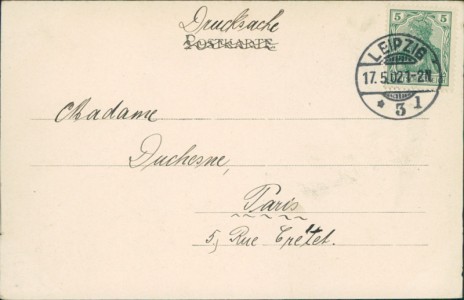 Drucksache
POSTKARTE
5 5
LEIPZIG
17.5.02.1-2N
* 3 1
Madame
Duchesne,
Paris
5, Rue Crétet.